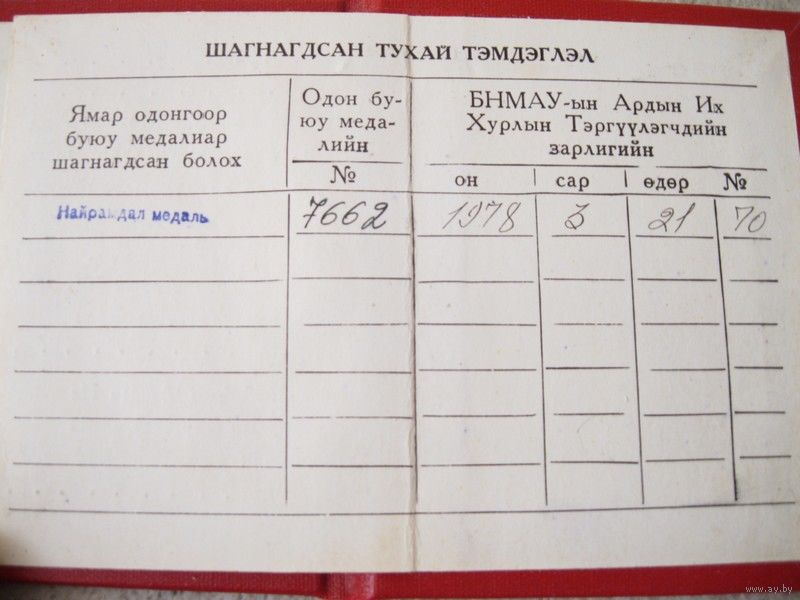 ШАГНАГДСАН ТУХАЙ ТЭМДЭГЛЭЛ
Ямар одонгоор
буюу медалиар
шагнагдсан болох
Одон бу-
юу меда-
лийн
№
БНМАУ-ын Ардын Их
Хурлын Тэргүүлэгчдийн
зарлигийн
он сар өдөр №
Найрамдал медаль 7662 1978 3 21 70
www.ay.by